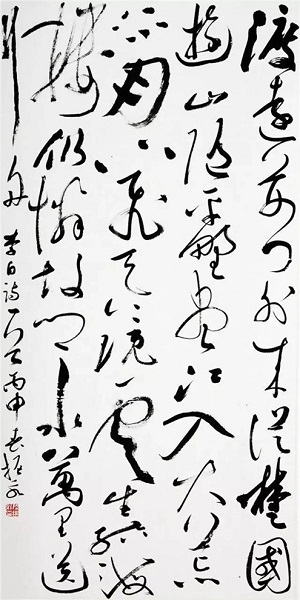 渡远荆门外来从楚国
游山随平野尽江入大荒
流月下飞天镜云生结海
楼仍怜故乡水万里送
行舟 李白诗一首丙申春